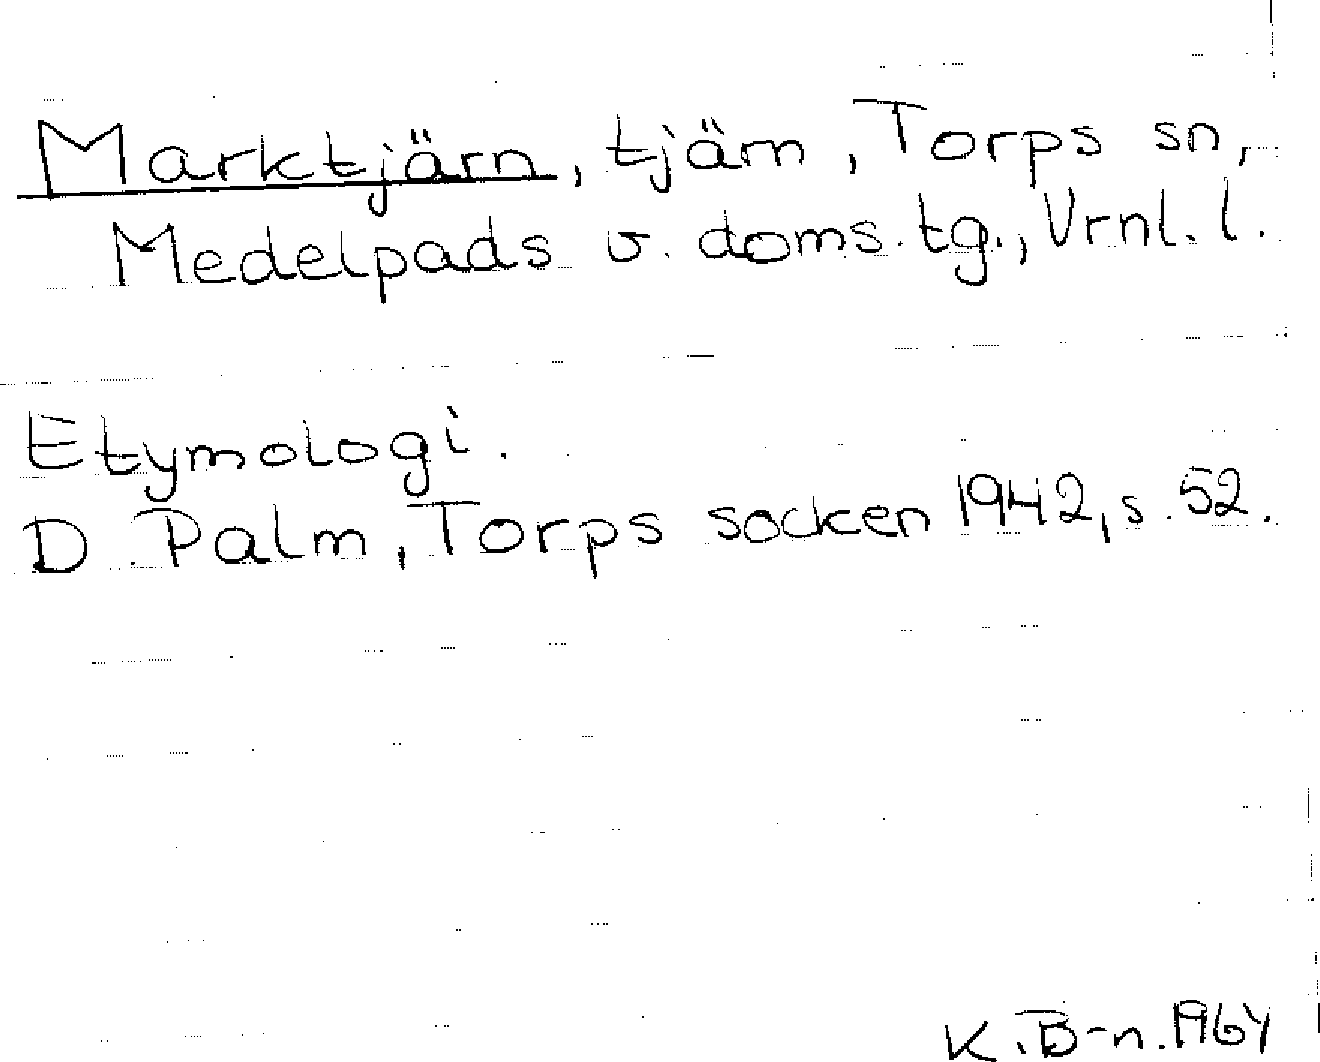 Marktjärn, tjärn, Torps sn,
Medelpads v. doms. tg., Vrnl. l.
Etymologi.
D Palm, Torps socken 1942, s. 52.
K. B-n. 1964